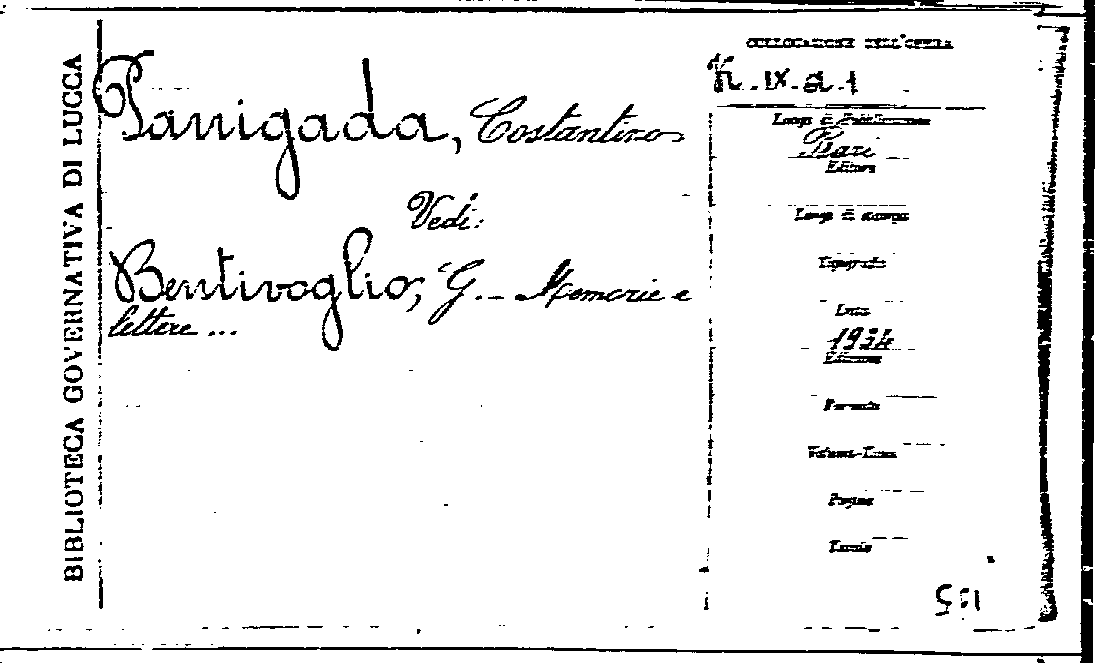 BIBLIOTECA GOVERNATIVA DI LUCCA
Panigada, Costantino
Vedi:
Bentivoglio, G. - Memorie e
lettere ...
COLLOCAZIONE DELL'OPERA
IX. a. 1
Luogo di Pubblicazione
Bari
Editore
Luogo di stampa
Tipografia
Data
1934
Edizione
Formato
Volume-Tomo
Pagine